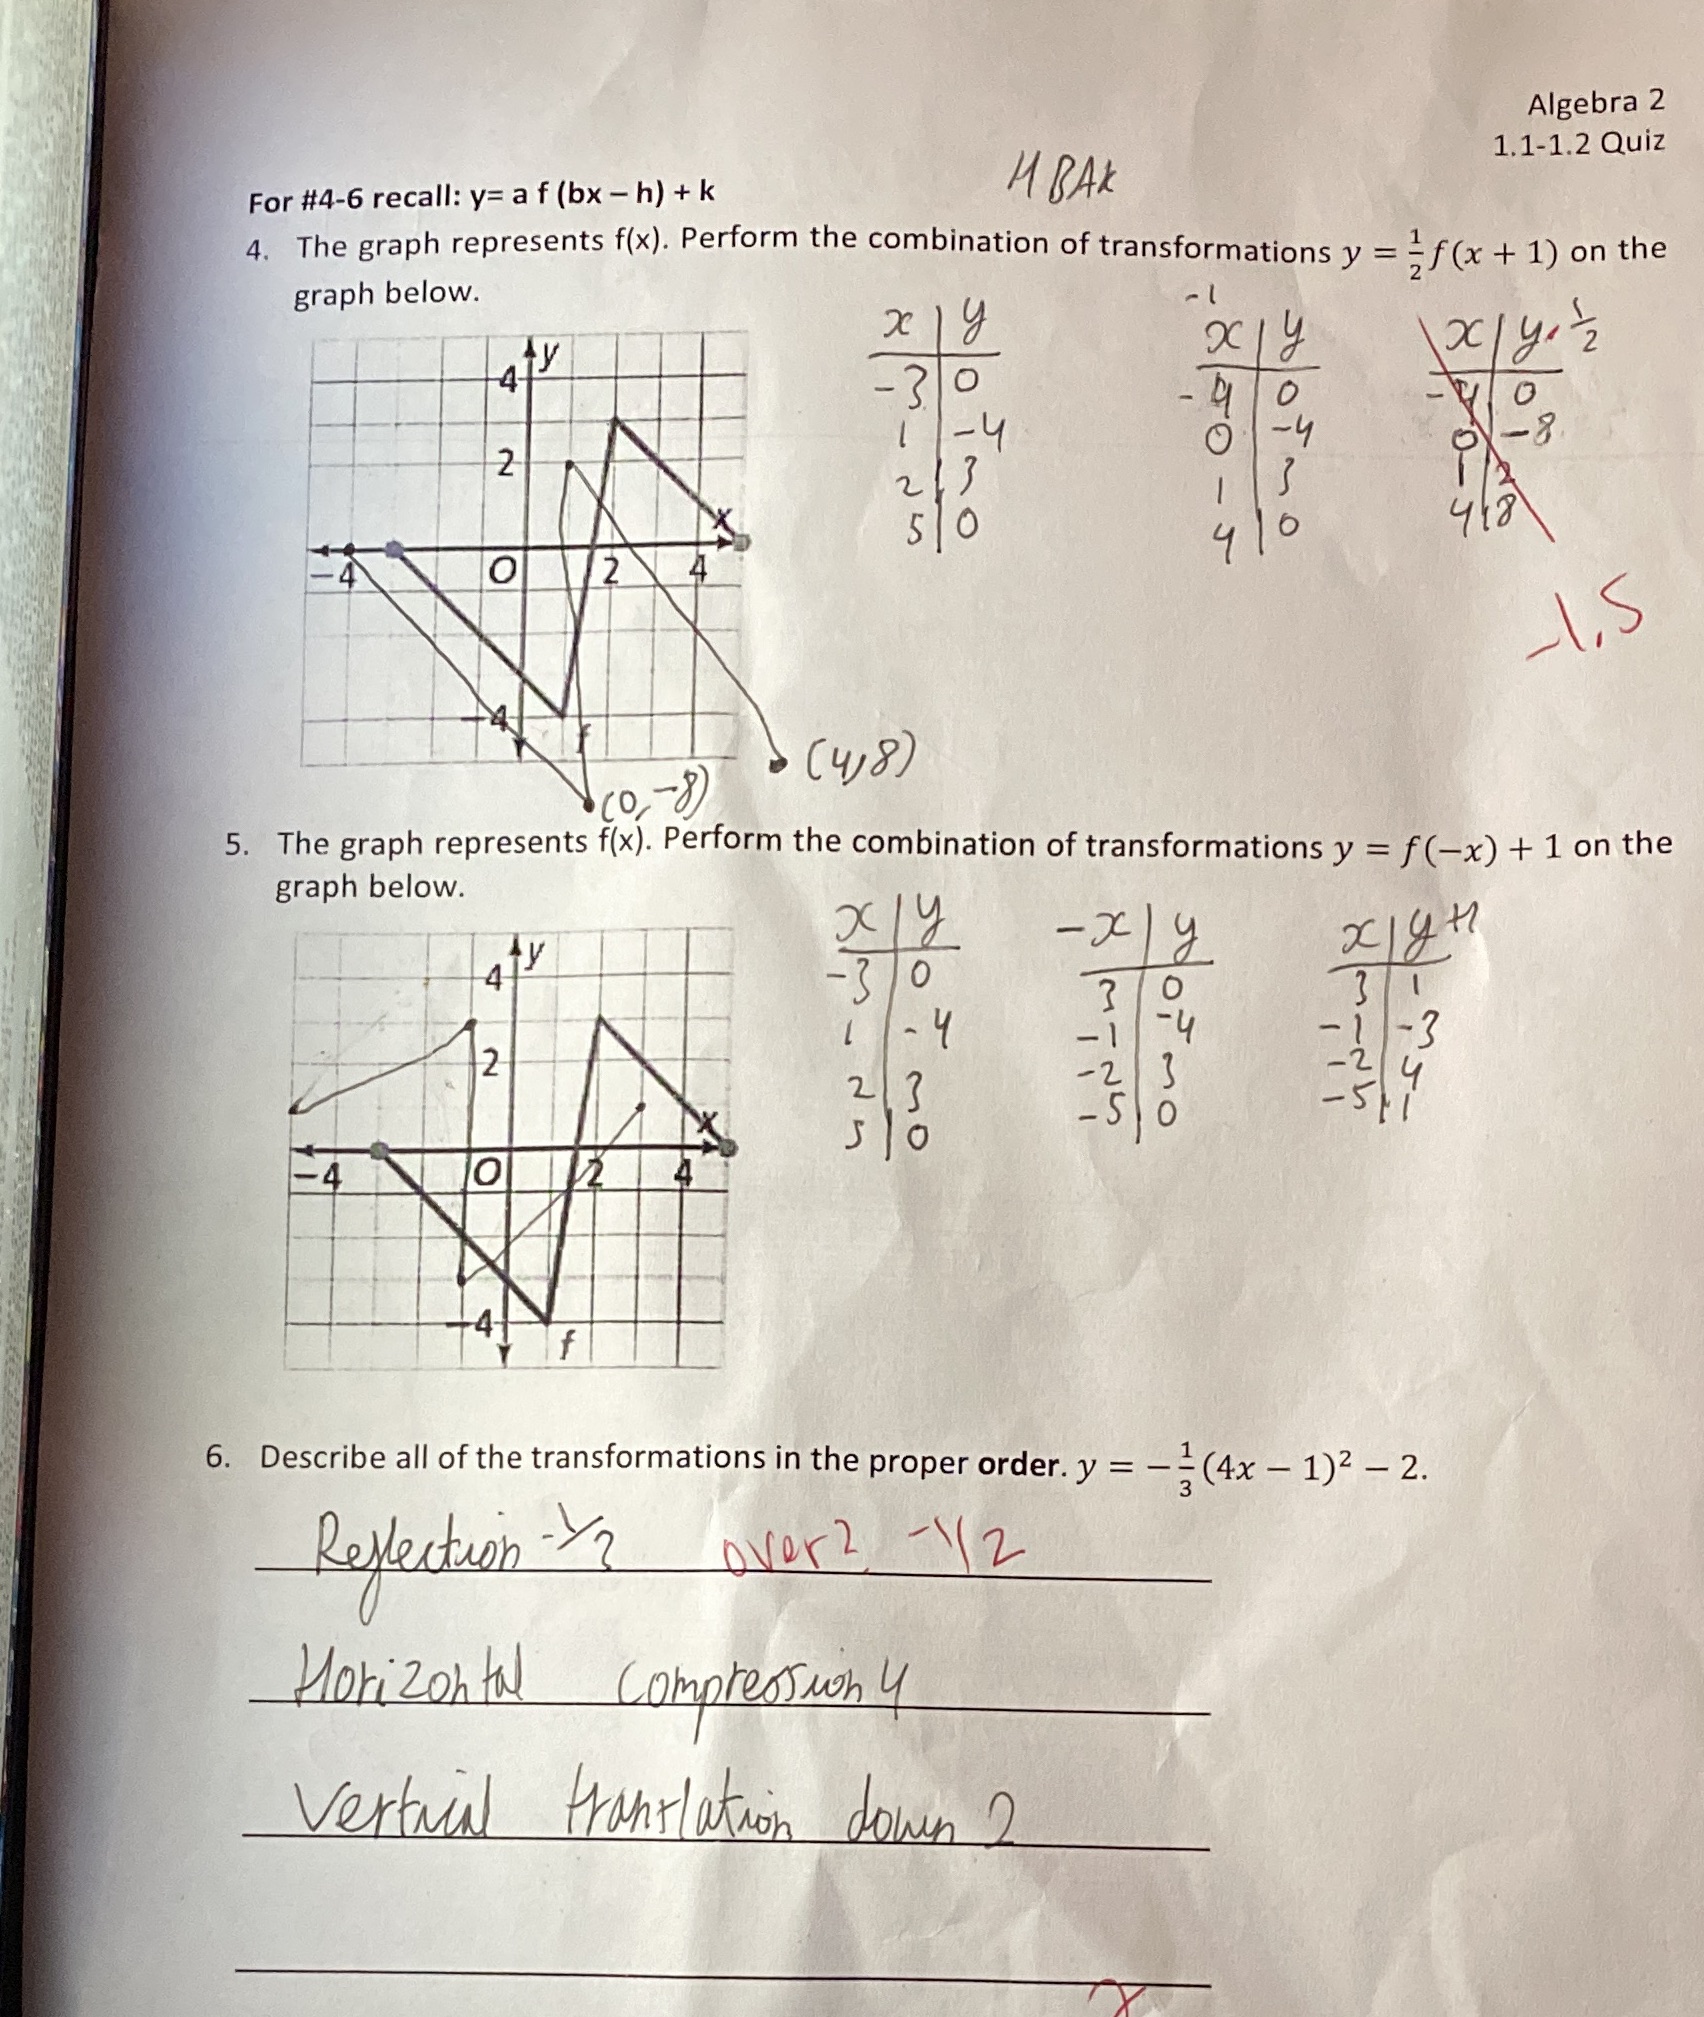 Algebra 2
1.1-1.2 Quiz
HBAK
For #4-6 recall: y= a f (bx – h) + k
4. The graph represents f(x). Perform the combination of transformations y = 1/2 f(x + 1) on the
graph below.
x | y
-3 | 0
1 | -4
2 | 3
5 | 0
-1
x | y
-4 | 0
0 | -4
1 | 3
4 | 0
x | y · 1/2
-4 | 0
0 | -8
1 | 2
4 | 8
-1.5
y
4
2
x
-4 O 2 4
-4
f
(4,8)
(0,-8)
5. The graph represents f(x). Perform the combination of transformations y = f(−x) + 1 on the
graph below.
x | y
-3 | 0
1 | -4
2 | 3
5 | 0
-x | y
3 | 0
-1 | -4
-2 | 3
-5 | 0
x | y+1
3 | 1
-1 | -3
-2 | 4
-5 | 1
y
4
2
x
-4 O 2 4
-4
f
6. Describe all of the transformations in the proper order. y = −1/3 (4x − 1)² − 2.
Reflection -1/3 over? -1/2
Horizontal compression 4
Vertical translation down 2